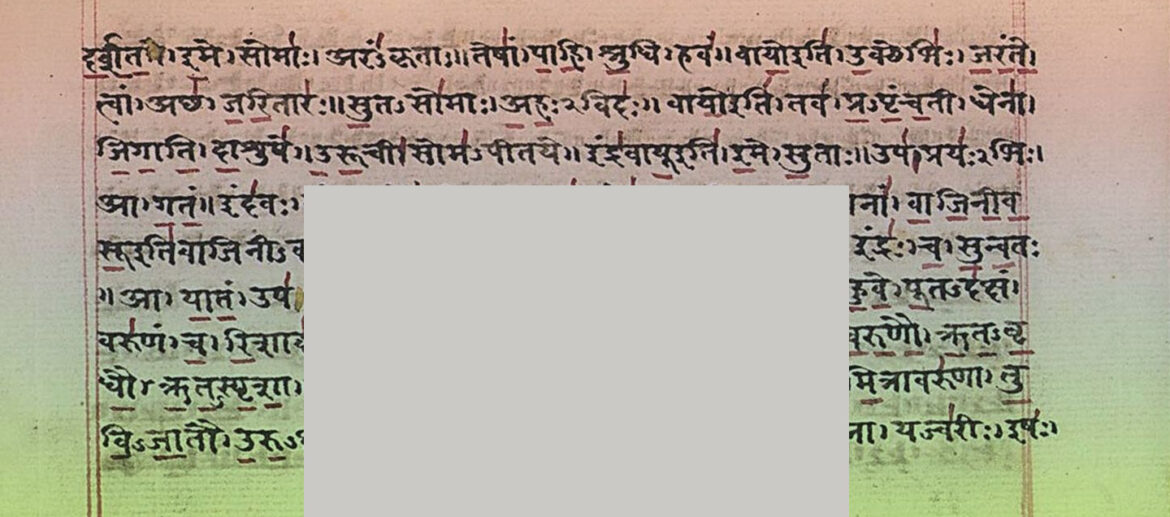 इमे। सोमाः। अरंऽकृताः॥ तेषां। पाहि। श्रुधि। हवं॥ वायोइति। उक्थेभिः। जरंते।
त्वां। अच्छ। जरितारः॥ सुतऽसोमाः। अहःऽविदः॥ वायोइति। तव। प्रऽपृंचती। धेना।
जिगाति। दाशुषे। उरूची। सोमऽपीतये॥ इंद्रवायूइति। इमे। सुताः॥ उप। प्रयःऽभिः।
आ। गतं॥ इंदवः। नां। वाजिनीव
सूइतिवाजिनीऽव इंद्रः। च। सुन्वतः
॥ आ। यातं। उप हुवे। पूतऽदक्षं।
वरुणं। च। रिशाद वरुणौ। ऋतऽवृ
धौ। ऋतऽस्पृशा। मित्रावरुणा। तु
विऽजातौ। उरुऽ ना। यज्वरीः। इषः।